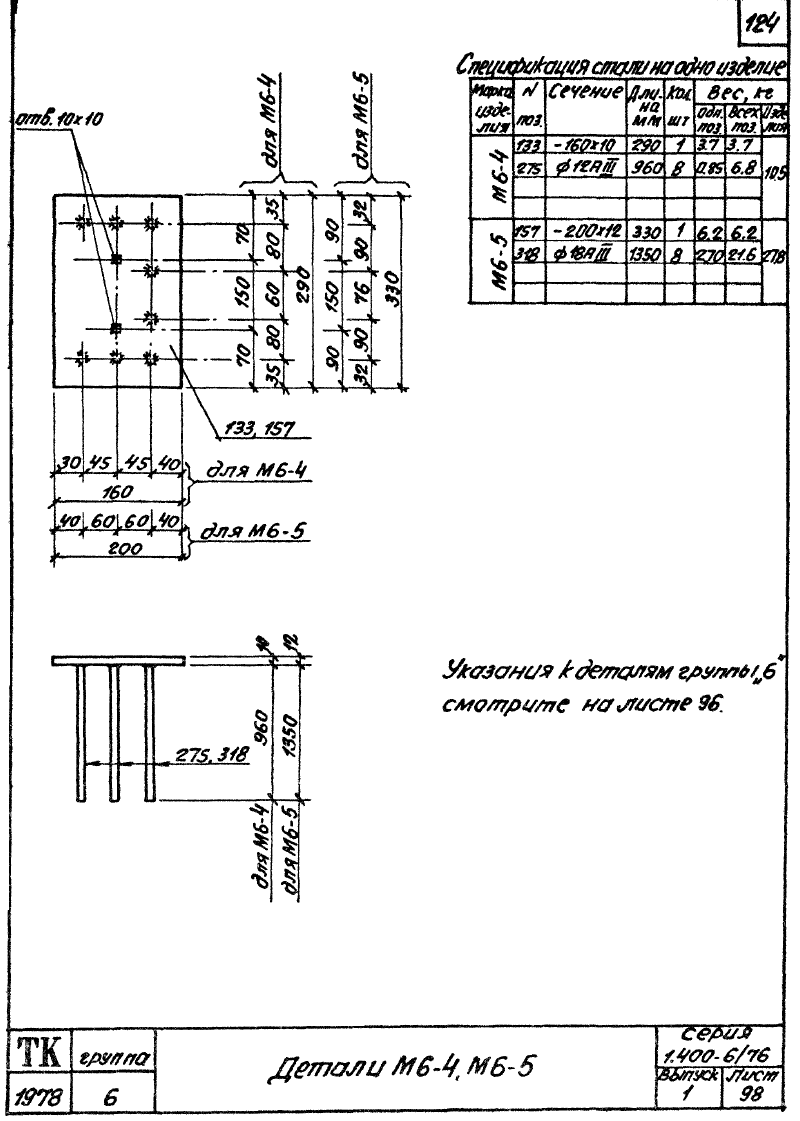 124
Спецификация стали на одно изделие
Марка изделия | N поз. | Сечение | Длина мм | Кол. шт | Вес, кг
Одн. поз. | Всех поз. | Изделия
М6-4 | 133 | -160×10 | 290 | 1 | 3.7 | 3.7 | 10,5
275 | ф12АIII | 960 | 8 | 0.85 | 6.8
М6-5 | 157 | -200×12 | 330 | 1 | 6.2 | 6.2 | 27,8
318 | ф18АIII | 1350 | 8 | 2.70 | 21.6
отв. 10×10
для М6-4
для М6-5
70 150 70
35 80 60 80 35
290
90 150 90
32 90 76 90 32
330
133, 157
30 45 45 40
для М6-4
160
40 60 60 40
для М6-5
200
10 12
960 1350
275, 318
для М6-4
для М6-5
Указания к деталям группы „6“
смотрите на листе 96.
ТК
1978
группа
6
Детали М6-4, М6-5
серия
1.400-6/76
Выпуск
1
Лист
98